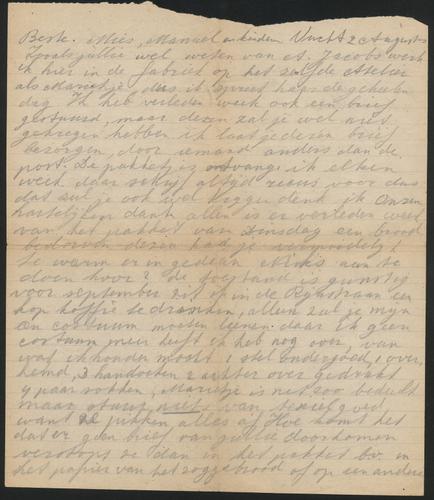 Beste Mies, Manuel en kinderen Vucht 2 Augustus
Zooals jullie wel weten van A. Jacobs werk
ik hier in de fabriek op het zelfde Atelier
als Marietje, dus ik spreek haar de geheelen
dag. Ik heb verleden week ook een brief
gestuurd, maar dezen zal je wel niet
gekregen hebben ik laat je dezen brief
bezorgen, door iemand anders dan de
post. De pakketjes ontvang ik elken
week, daar schrijf altyd recus voor dus
dat zul je ook wel hoger denk ik onzen
hartelijken dank, allen is er verleden week
van het pakket van Dinsdag een brood
bedorven dezen had je vermoedelyk
te warm er in gedaan niks aan te
doen hoor? de toestand is gunstig
voor september zit ik in de
kop koffie te drinken, alleen zul je mijn
een costuum moeten leenen daar ik geen
costuum meer heeft ik heb nog over, van
wat ik houden mocht 1 stel ondergoed, 1 over
hemd, 3 handdoeken 2 achter over gedraaid
4 paar sokken, Marietje is net zoo bedeelt
maar stuur niets van textiel goed
want ze pikken alles af Hoe komt het
dat er geen brief van jullie doorkomen
verstop ze dan in het pakket bv. in
het papier van het roggebrood of op een andere